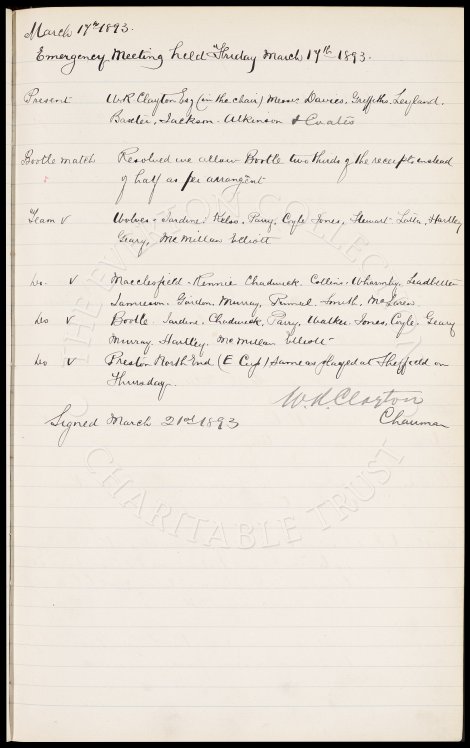 March 17th 1893.
Emergency Meeting held Friday March 17th 1893.
Present W R Clayton Esq (in the chair) Messrs Davies, Griffiths, Leyland,
Baxter, Jackson, Atkinson & Coates
Bootle match Resolved we allow Bootle two thirds of the receipts instead
of half as per arrangent
Team v Wolves. Jardine, Kelso, Parry, Coyle, Jones, Stewart, Latta, Hartley
Geary, McMillan Elliott
Do. v Macclesfield. Rennie Chadwick. Collins, Wharmby, Leadbetter
Jamieson. Gordon, Murray, Smith, McLaren
Do v Bootle. Jardine, Chadwick, Parry, Walker, Jones, Coyle, Geary
Murray, Hartley, McMillan Elliott
Do v Preston North End (E Cup) Same as played at Sheffield on
Thursday.
W.R. Clayton
Signed March 21st 1893 Chairman
THE EVERTON COLLECTION
CHARITABLE TRUST